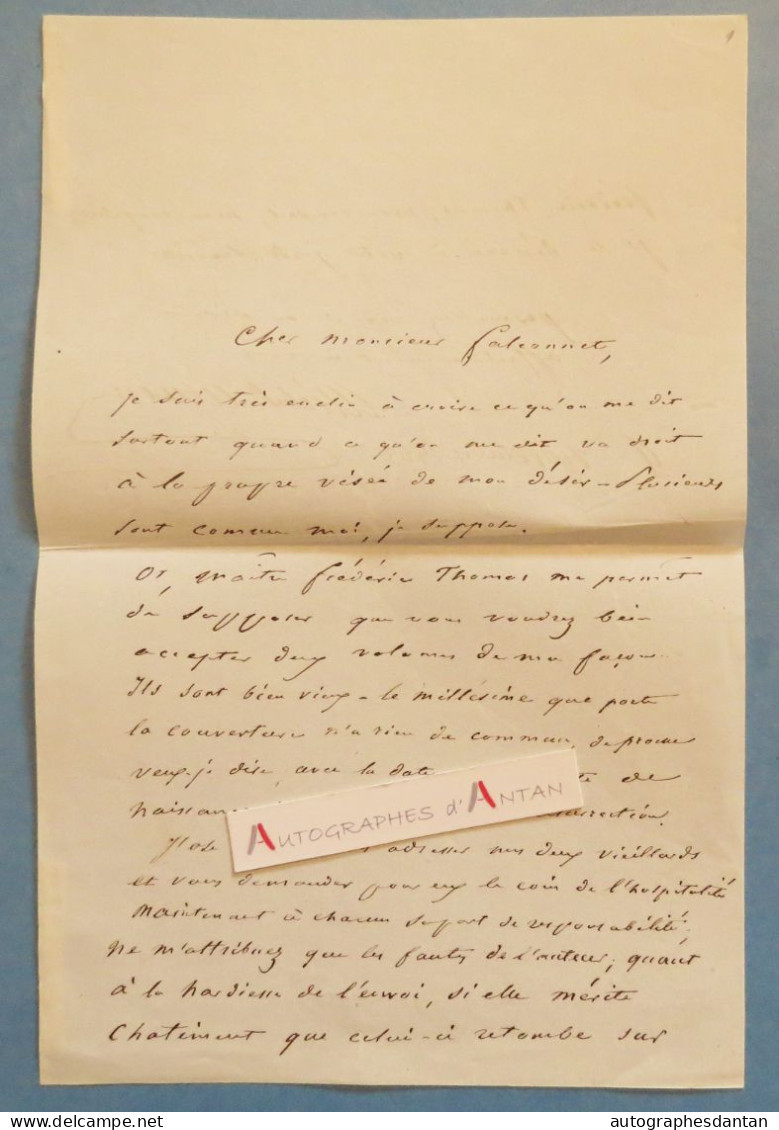 Cher Monsieur Falconnet,
je suis très enclin à croire ce qu'on me dit
surtout quand ce qu'on me dit va droit
à la propre visée de mon désir - Plusieurs
sont comme moi, je suppose.
Or, Maître Frédéric Thomas me permet
de supposer que vous voudrez bien
accepter deux volumes de ma façon -
Ils sont bien vieux - le millésime que porte
la couverture n'a rien de commun,
veux-je dire, avec la date de
naissance
J'ose adresser mes deux vieillards
et vous demander pour eux le coin de l'hospitalité
Maintenant à chacun sa part de responsabilité;
ne m'attribuez que les fautes de l'auteur; quant
à la hardiesse de l'envoi, si elle mérite
châtiment que celui-ci retombe sur
AUTOGRAPHES d'ANTAN
autographesdantan